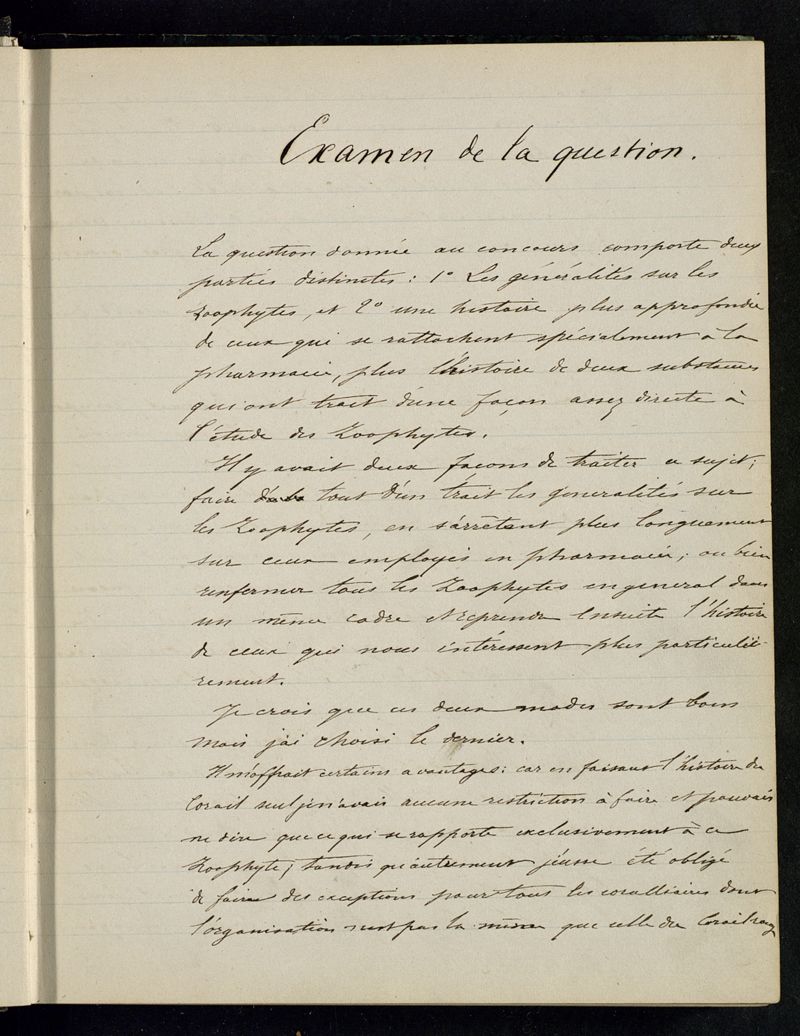 Examen de la question.
La question donnée au concours comporte deux
parties distinctes : 1° Les généralités sur les
Zoophytes, et 2° une histoire plus approfondie
de ceux qui se rattachent spécialement à la
pharmacie, plus l'histoire de deux substances
qui ont trait d'une façon assez directe à
l'étude des Zoophytes.
Il y avait deux façons de traiter ce sujet ;
faire tout d'un trait les généralités sur
les Zoophytes, en s'arrêtant plus longuement
sur ceux employés en pharmacie ; ou bien
renfermer tous les Zoophytes en general dans
un même cadre et reprendre ensuite l'histoire
de ceux qui nous intéressent plus particuliè-
rement.
Je crois que ces deux modes sont bons
mais j'ai choisi le dernier.
Il m'offrait certains avantages : car en faisant l'histoire du
Corail seul je n'avais aucune restriction à faire et pouvais
ne dire que ce qui se rapporte exclusivement à ce
Zoophyte ; tandis qu'autrement j'eusse été obligé
de faire des exceptions pour tous les coralliaires dont
l'organisation n'est pas la même que celle du Corail rouge